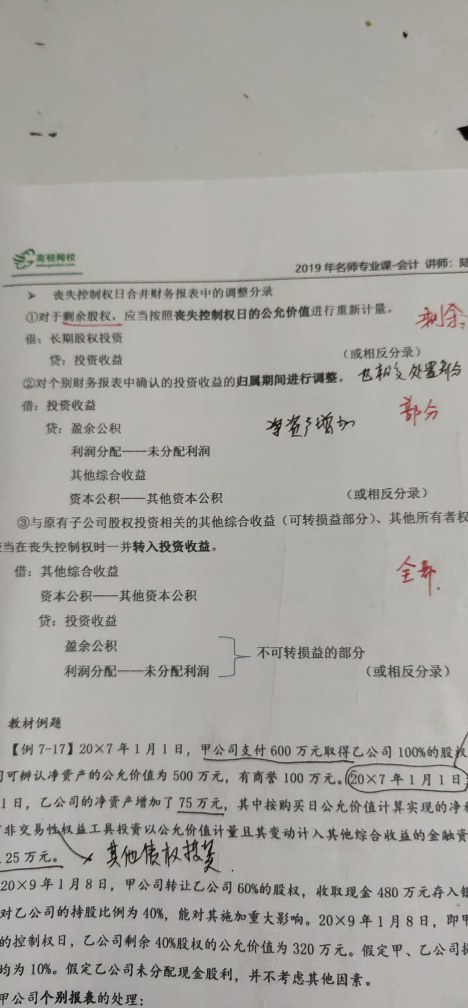 高顿网校
2019 年名师专业课-会计 讲师：陆
➤ 丧失控制权日合并财务报表中的调整分录
①对于剩余股权，应当按照丧失控制权日的公允价值进行重新计量。
剩余
借：长期股权投资
贷：投资收益 （或相反分录）
②对个别财务报表中确认的投资收益的归属期间进行调整。
处置部分
借：投资收益
部分
贷：盈余公积
净资产增加
利润分配——未分配利润
其他综合收益
资本公积——其他资本公积 （或相反分录）
③与原有子公司股权投资相关的其他综合收益（可转损益部分）、其他所有者权
应当在丧失控制权时一并转入投资收益。
借：其他综合收益
全部
资本公积——其他资本公积
贷：投资收益
盈余公积
不可转损益的部分
利润分配——未分配利润 （或相反分录）
教材例题
【例 7-17】20×7 年 1 月 1 日，甲公司支付 600 万元取得乙公司 100%的股权
司可辨认净资产的公允价值为 500 万元，有商誉 100 万元。20×7 年 1 月 1 日
1 日，乙公司的净资产增加了 75 万元，其中按购买日公允价值计算实现的净利
非交易性权益工具投资以公允价值计量且其变动计入其他综合收益的金融资
25 万元。
其他债权投资
20×9 年 1 月 8 日，甲公司转让乙公司 60%的股权，收取现金 480 万元存入银
对乙公司的持股比例为 40%，能对其施加重大影响。20×9 年 1 月 8 日，即甲
的控制权日，乙公司剩余 40%股权的公允价值为 320 万元。假定甲、乙公司提
均为 10%。假定乙公司未分配现金股利，并不考虑其他因素。
甲公司个别报表的处理：